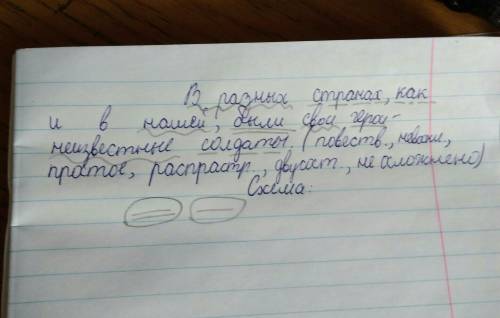 В разных странах, как
и в нашей, были свои герои-
неизвестные солдаты. (повеств., невоскл.,
простое, распрастр., двусост., не осложнено)
Схема: